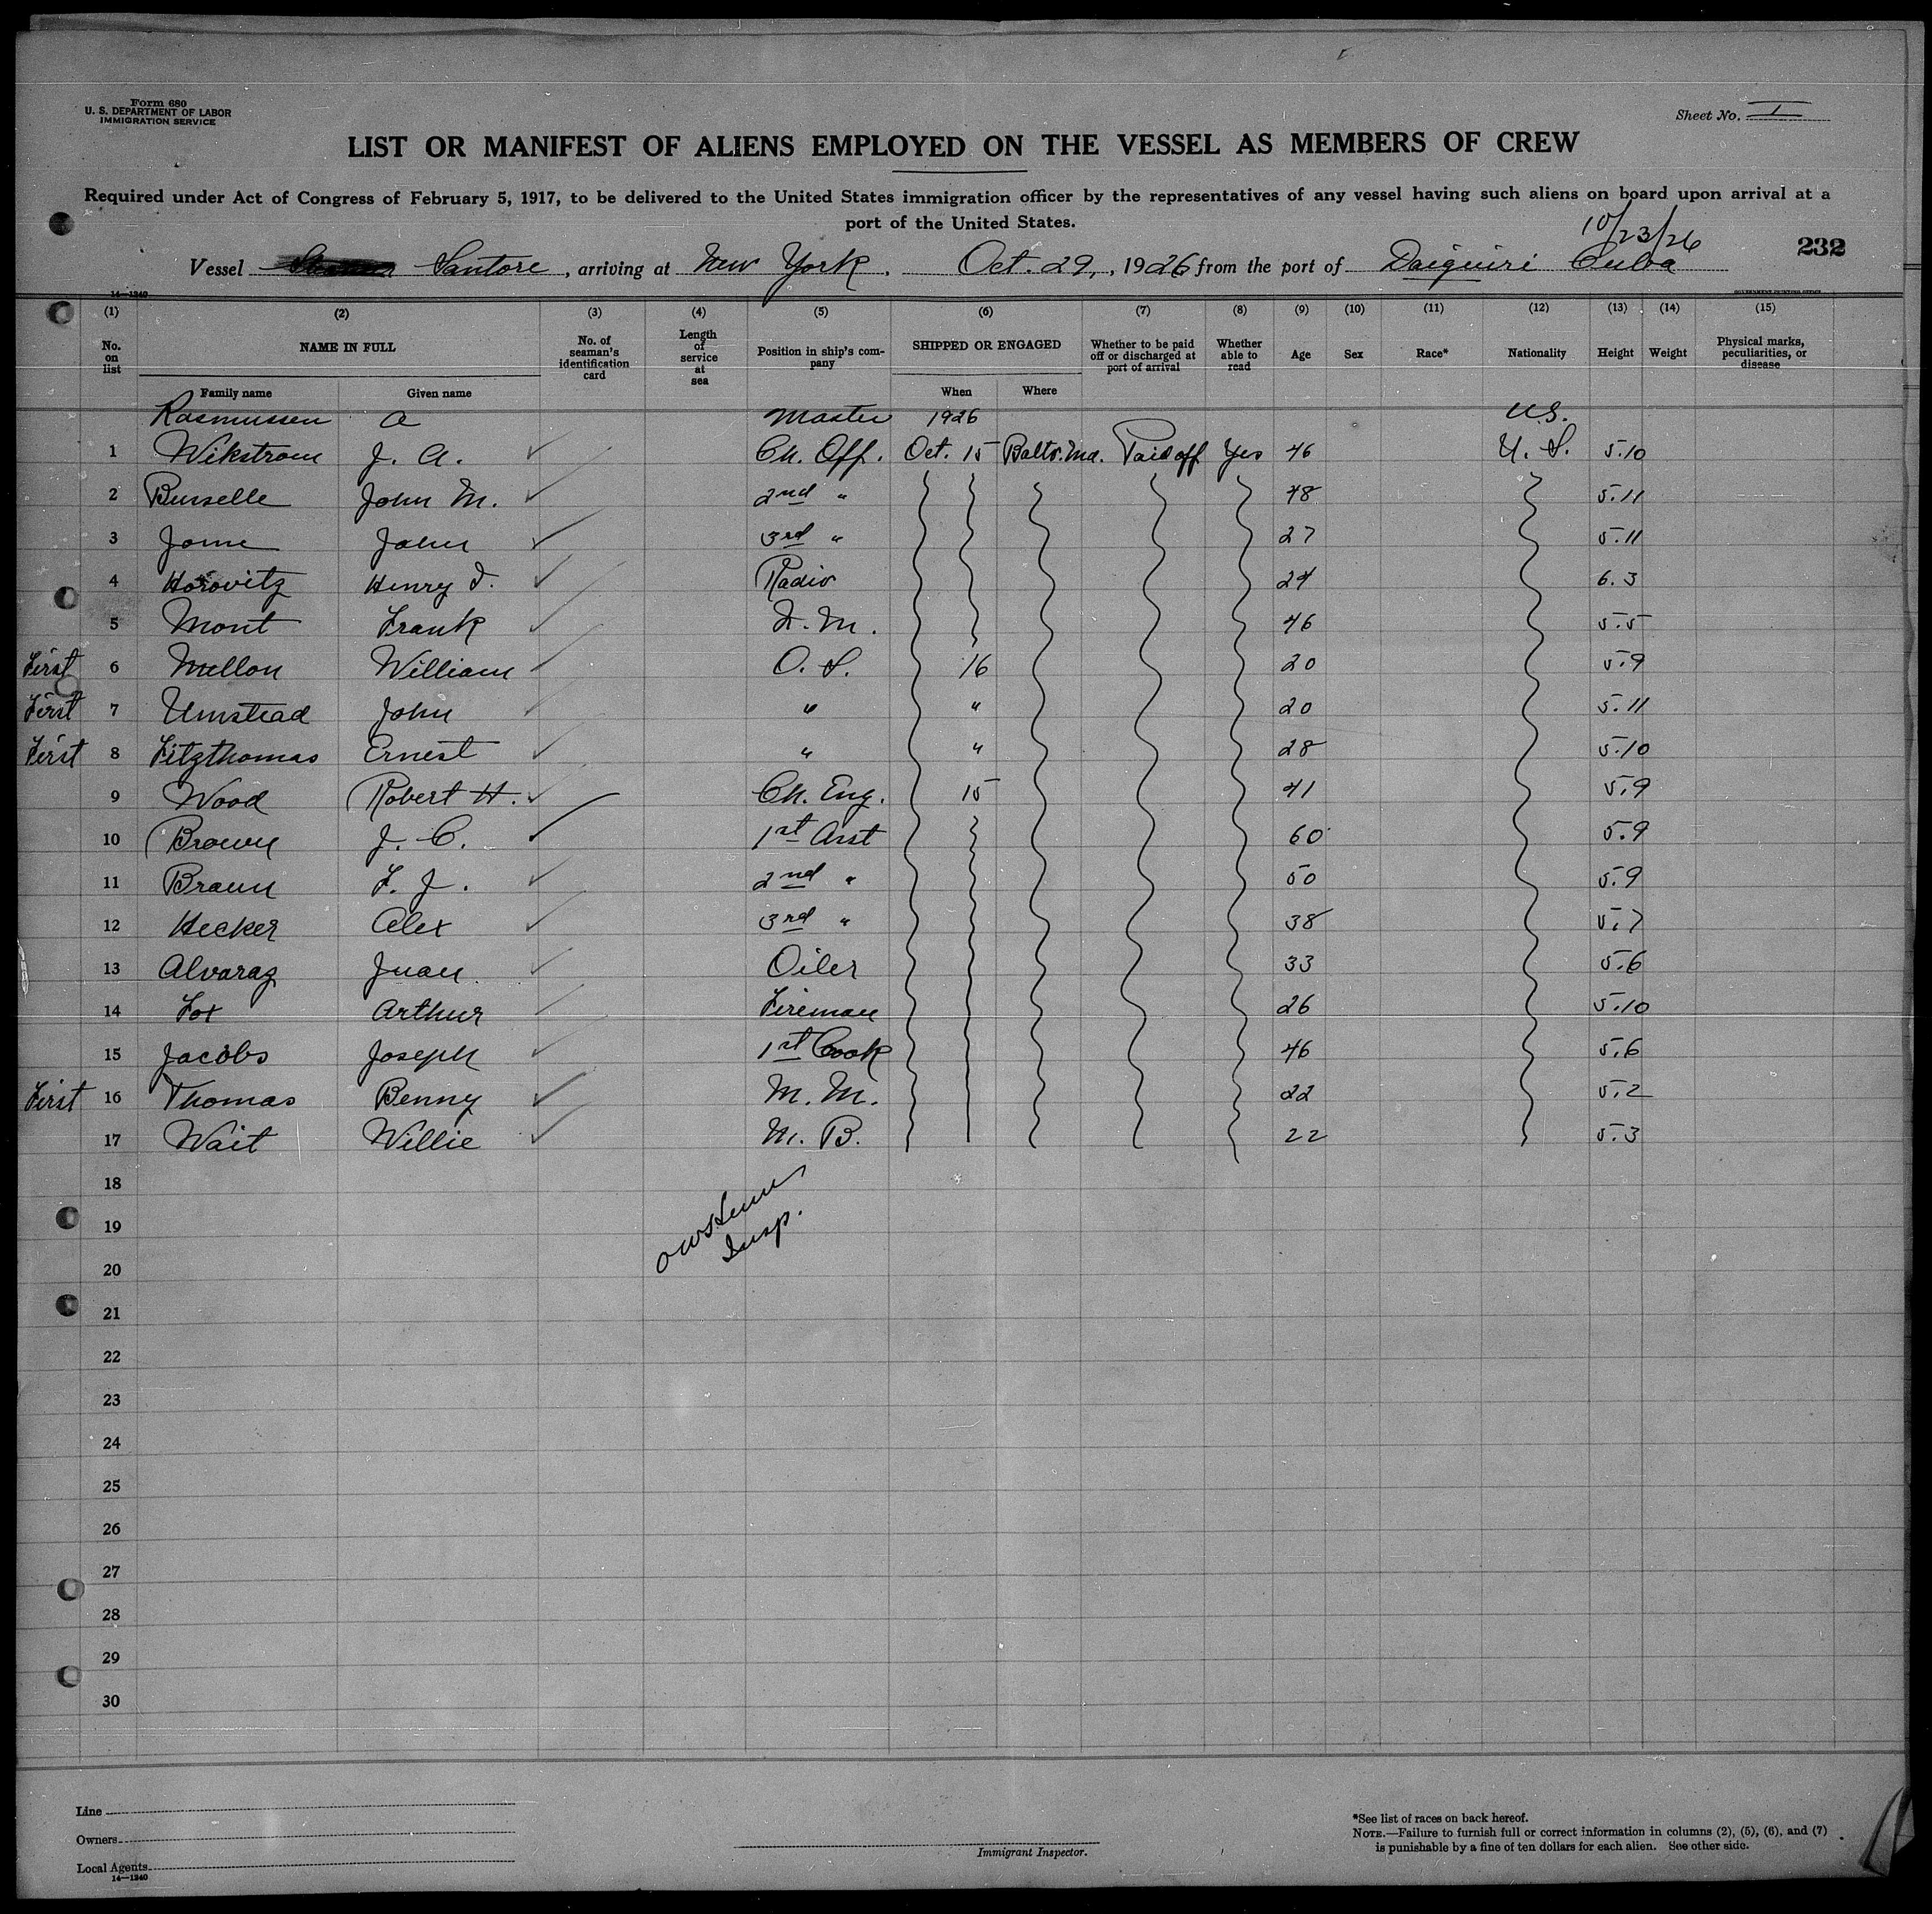 Form 680
U. S. DEPARTMENT OF LABOR
IMMIGRATION SERVICE
Sheet No. I
LIST OR MANIFEST OF ALIENS EMPLOYED ON THE VESSEL AS MEMBERS OF CREW
Required under Act of Congress of February 5, 1917, to be delivered to the United States immigration officer by the representatives of any vessel having such aliens on board upon arrival at a
port of the United States.
10/23/26
Vessel Santore, arriving at New York. Oct. 29, 1926 from the port of Daiquiri Cuba 232
14—1240 GOVERNMENT PRINTING OFFICE
(1) (2) (3) (4) (5) (6) (7) (8) (9) (10) (11) (12) (13) (14) (15)
No. on list NAME IN FULL No. of seaman's identification card Length of service at sea Position in ship's company SHIPPED OR ENGAGED Whether to be paid off or discharged at port of arrival Whether able to read Age Sex Race* Nationality Height Weight Physical marks, peculiarities, or disease
Family name Given name When Where
Rasmussen A Master 1926 U.S.
1 Wikstrom J. A. Ch. Off. Oct. 15 Balto. Md. Paid off Yes 46 U. S. 5.10
2 Burselle John M. 2nd " 48 5.11
3 John 3rd " 27 5.11
4 Horovitz Henry I. Radio 24 6.3
5 Mont Frank Q.M. 46 5.5
First 6 Mellon William O. S. 16 20 5.9
First 7 Umstead John " " 20 5.11
First 8 Fitzthomas Ernest " " 28 5.10
9 Wood Robert H. Ch. Eng. 15 41 5.9
10 Brown J. C. 1st Asst 60 5.9
11 Braun F. J. 2nd " 50 5.9
12 Hecker Alex 3rd " 38 5.7
13 Alvaraz Juan Oiler 33 5.6
14 Fox Arthur Fireman 26 5.10
15 Jacobs Joseph 1st Cook 46 5.6
First 16 Thomas Benny M. M. 22 5.2
17 Wait Willie M. B. 22 5.3
18
19
Insp.
20
21
22
23
24
25
26
27
28
29
30
Line
Owners
Local Agents
14—1240
Immigrant Inspector.
*See list of races on back hereof.
NOTE.—Failure to furnish full or correct information in columns (2), (5), (6), and (7)
is punishable by a fine of ten dollars for each alien. See other side.